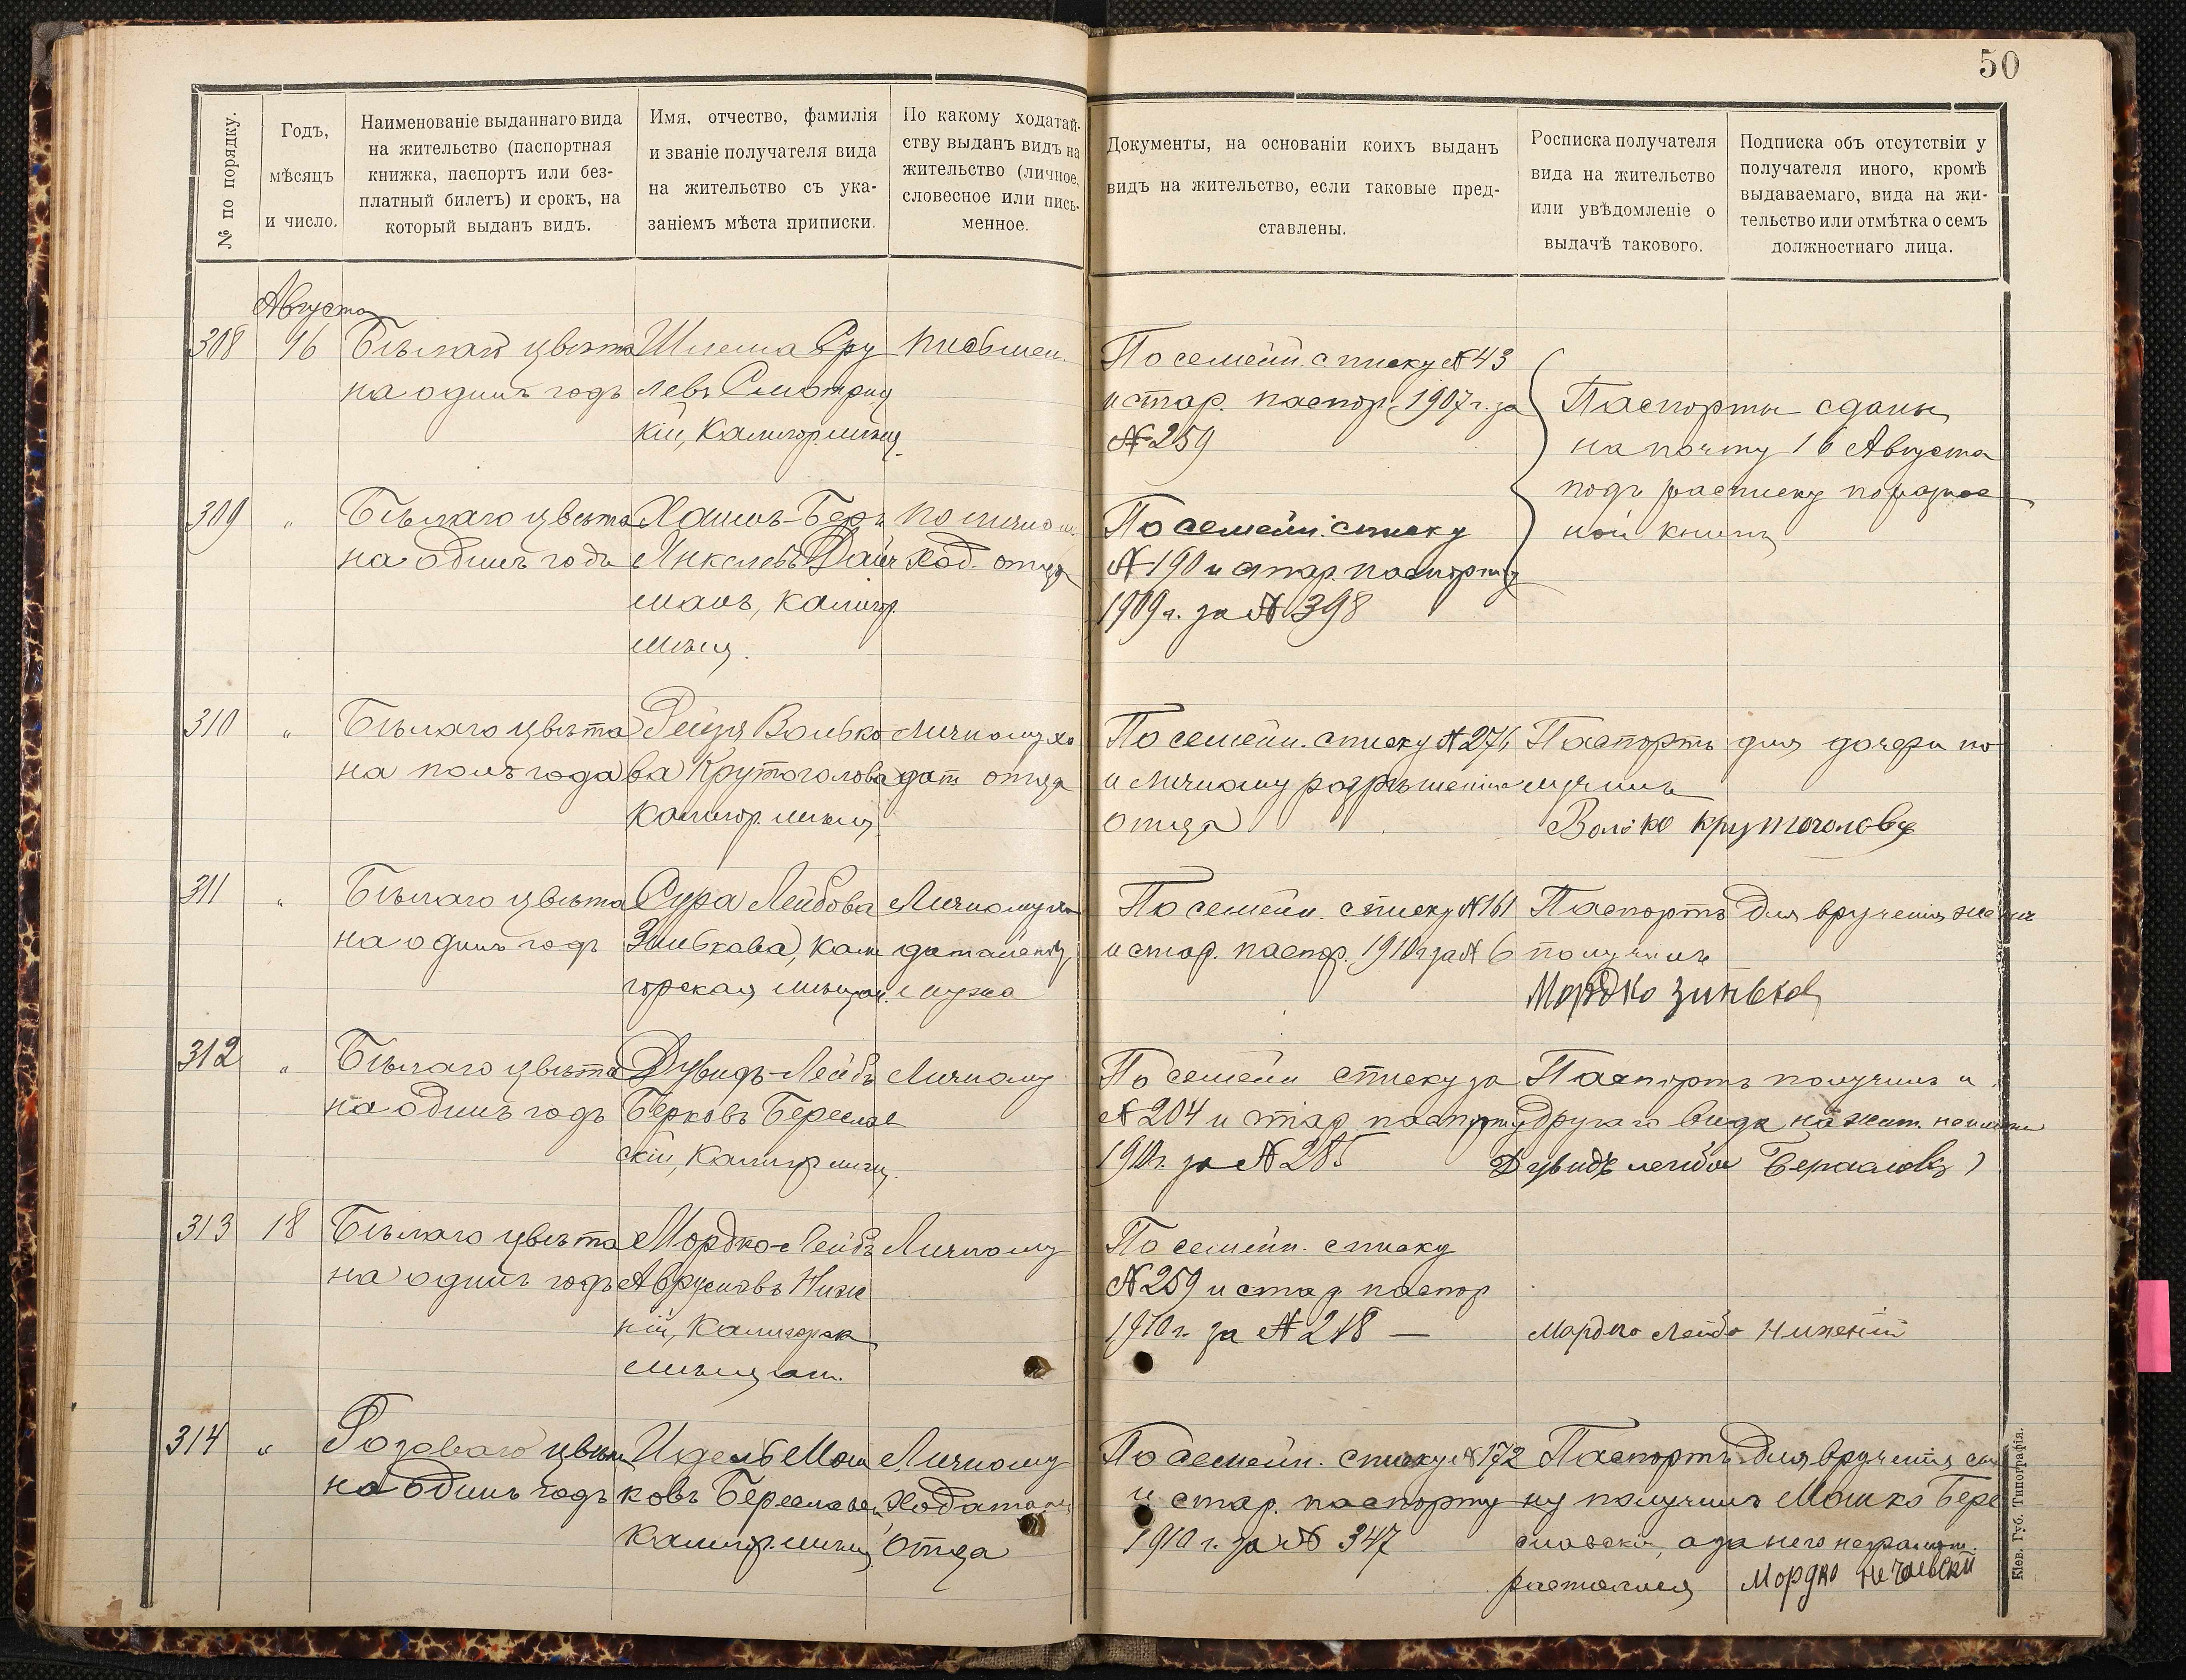 50
№ по порядку.
Годъ,
мѣсяцъ
и число.
Наименованіе выданнаго вида
на жительство (паспортная
книжка, паспортъ или без-
платный билетъ) и срокъ, на
который выданъ видъ.
Имя, отчество, фамилія
и званіе получателя вида
на жительство съ ука-
заніемъ мѣста приписки.
По какому ходатай-
ству выданъ видъ на
жительство (личное,
словесное или пись-
менное.
Документы, на основаніи коихъ выданъ
видъ на жительство, если таковые пред-
ставлены.
Росписка получателя
вида на жительство
или увѣдомленіе о
выдачѣ такового.
Подписка объ отсутствіи у
получателя иного, кромѣ
выдаваемаго, вида на жи-
тельство или отмѣтка о семъ
должностнаго лица.
Августа
308
16
на одинъ годъ
Шлема Сру
левъ Смотриц
кій, Калигор. мѣщ.
письмен.
По семейн. списку № 43
и стар. паспор. 1907 г. за
№ 259
Паспорты сданы
на почту 16 Августа
подъ расписку по разнос
ной книгѣ
309
"
Бѣлаго цвѣта
на одинъ годъ
Хаимъ-Беръ
Янкелевъ Дайч
манъ, Калигор.
мѣщ.
по личном
ход. отца
По семейн. списку
№ 190 и стар. паспорту
1909 г. за № 398
310
"
Бѣлаго цвѣта
на полъ года
Рейзя Волько
ва Крутоголова
Калигор. мѣщ.
Личному хо
дат отца
По семейн. списку № 276
и личному разрѣшенію
отца
Паспортъ для дочери по
лучилъ
Волько Крутоголовъ
311
"
Бѣлаго цвѣта
на одинъ годъ
Сура Лейбова
Зинькова, Кали
горская мѣщан.
Личному хо
мужа
По семейн. списку № 161
и стар. паспор. 1910 г за № 6
Паспортъ для врученія женѣ
получилъ
Мордко Зиньков
312
"
Бѣлаго цвѣта
на одинъ годъ
Дувидъ-Лейбъ
Берковъ Береслав
скій, Калигор мѣщ.
Личному
По семейн списку за
№ 204 и стар паспорту
1910 г. за № 285
Паспортъ получилъ и
другаго вида на жит. не имѣю
Дувидъ лейба
313
18
Бѣлаго цвѣта
на одинъ годъ
Мордко-Лейбъ
Аврумовъ Ниж
ній, Калигорск
мѣщан.
Личному
По семейн. списку
№ 259 и стар паспор
1910 г. за № 218 —
Мордко Лейбо Нижений
314
"
Розоваго цвѣта
на одинъ годъ
Идель Мош
ковъ Береславск
Калигор. мѣщ.
Личному
Ходатай
отца
По семейн. списку № 172
и стар. паспорту
1910 г. за № 347
Паспортъ для врученія сы
ну получилъ Мошко Бере
славскій, а за него неграмотн.
расписался
Мордко
Кіев. Губ. Типографія.